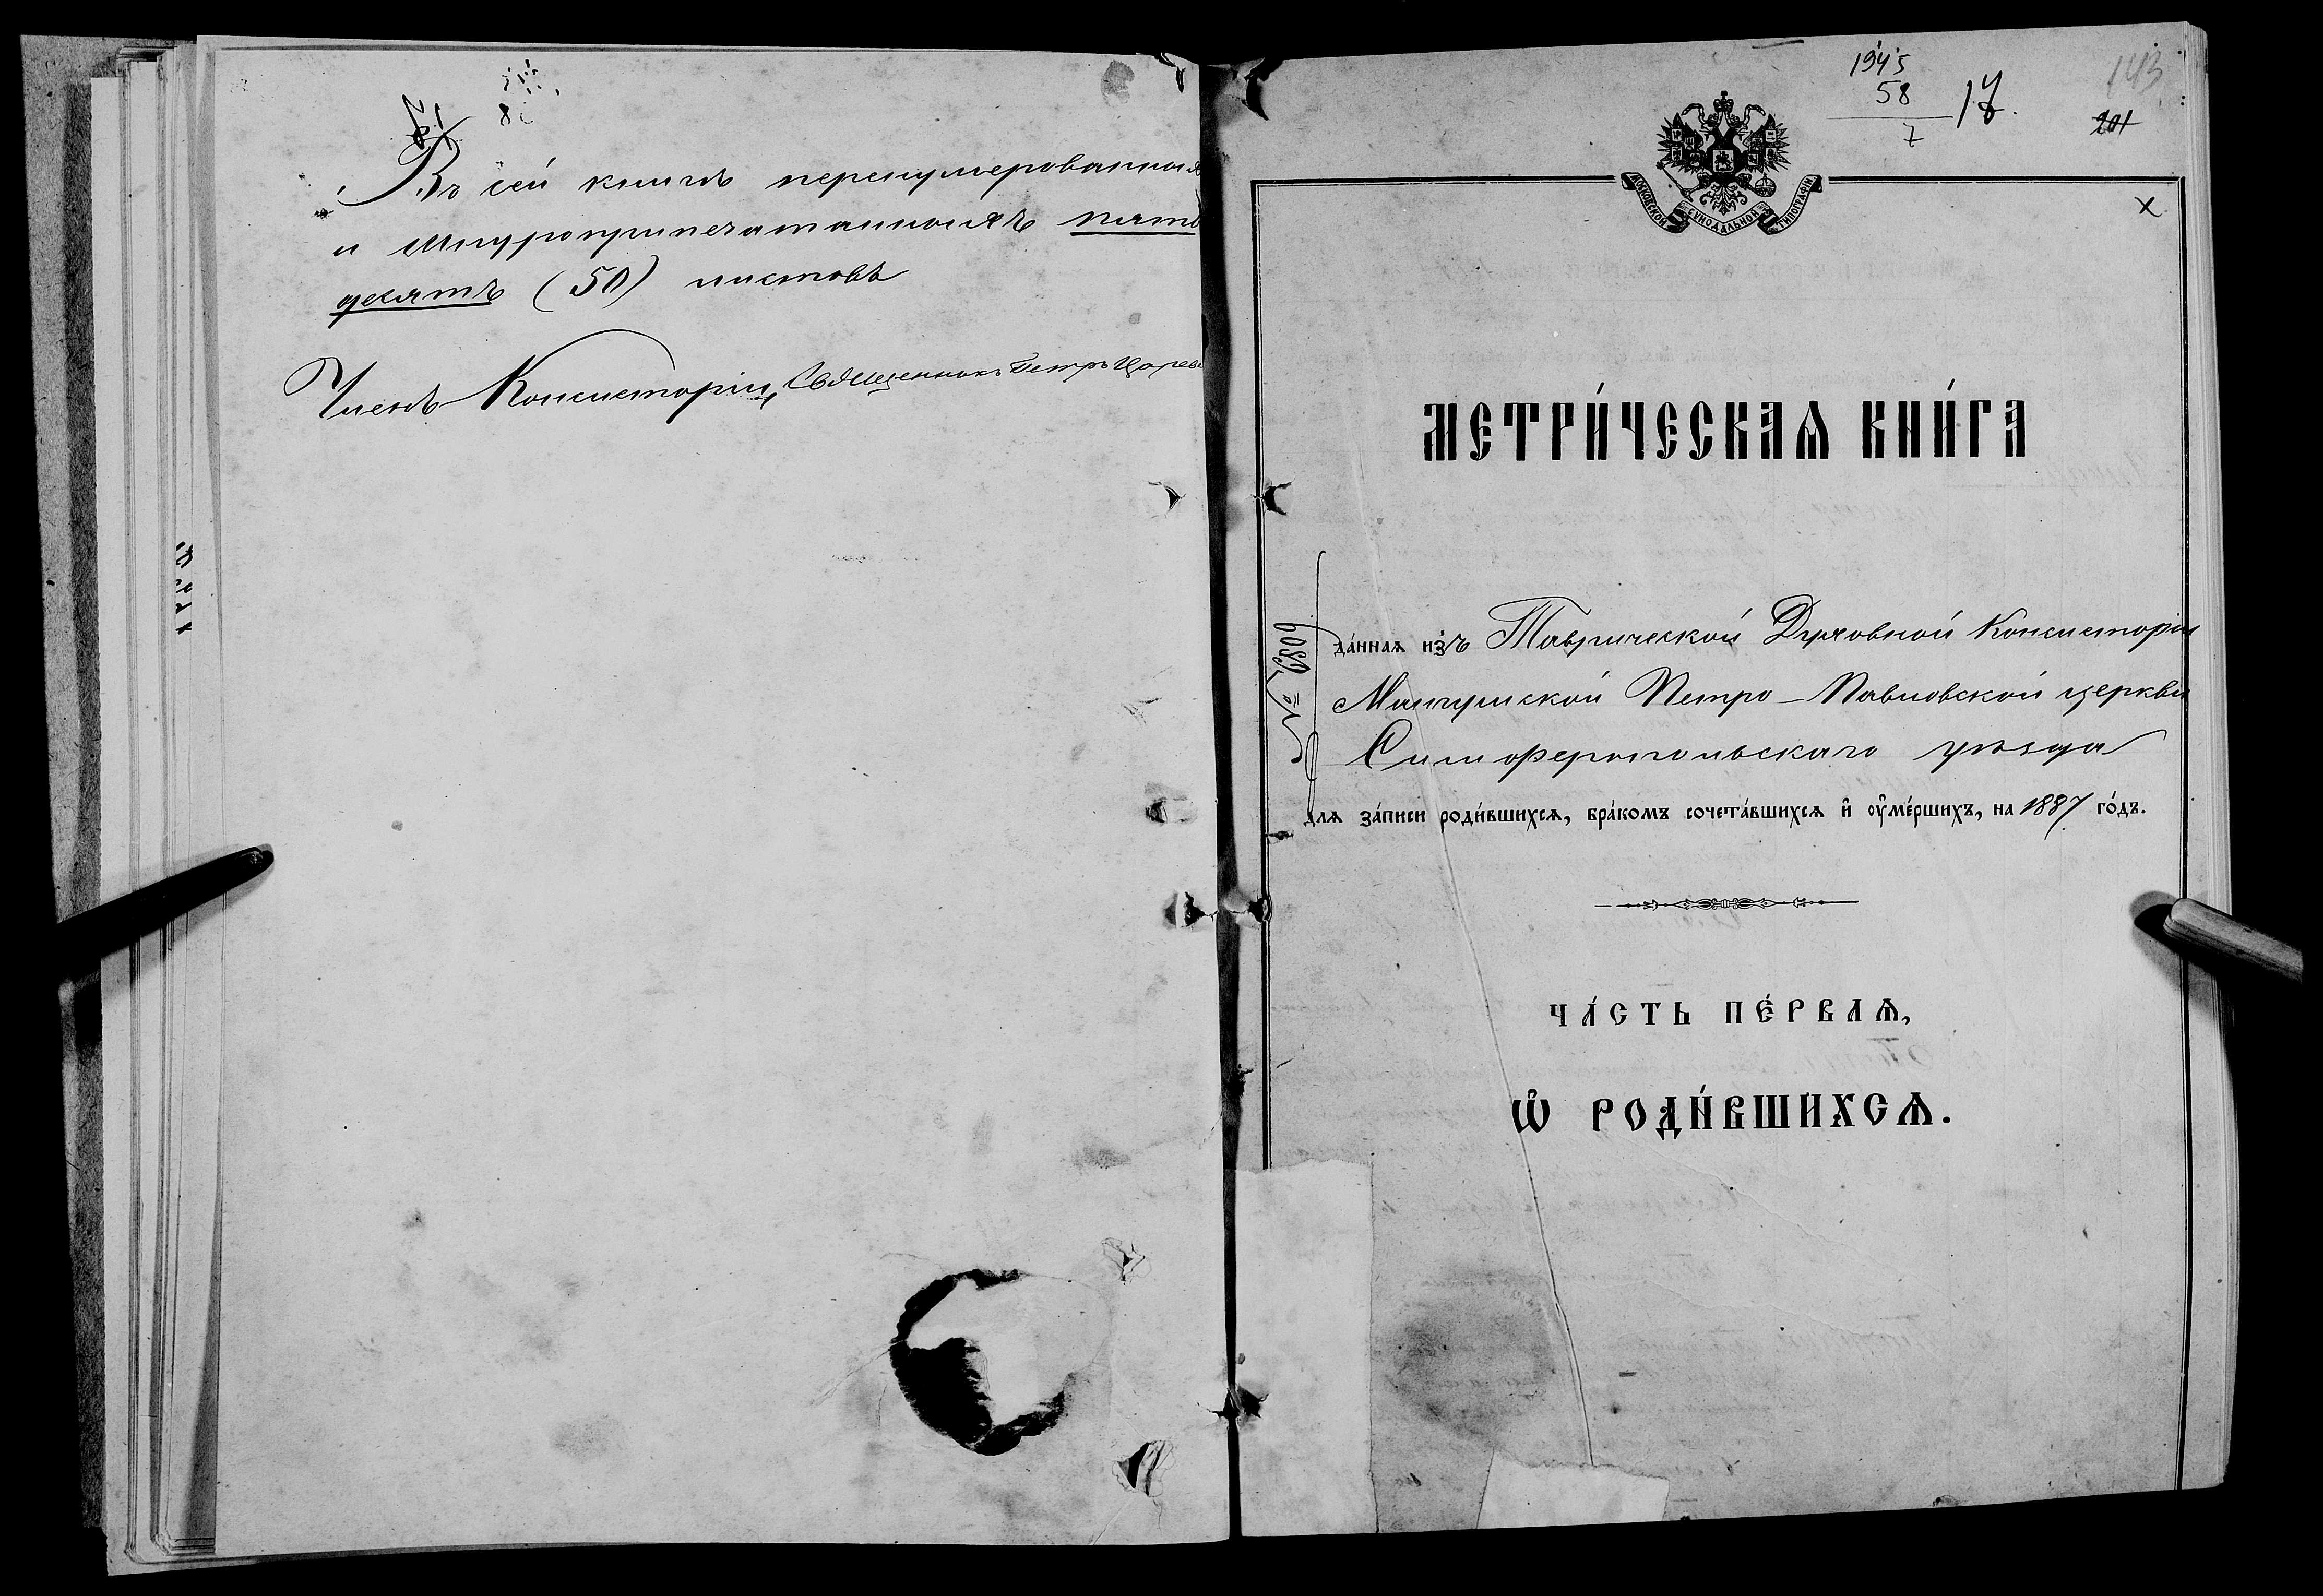 Въ сей книгѣ перенумерованныхъ
и шнуроприпечатанныхъ пять
десятъ (50) листовъ
Членъ Консисторіи, Священникъ Петръ
1945
58
7
17.
143
201
х
МОСКОВСКОЙ СѴНОДАЛЬНОЙ ТИПОГРАФІИ.
МЕТРИ́ЧЕСКАѦ КНИ́ГА
№ 6809
да́ннаѧ и҆з̾ Таврической Духовной Консисторіи
Мангушской Петро-Павловской церкви
Симферопольскаго уѣзда
длѧ за́писи роди́вшихсѧ, бра́комъ сочета́вшихсѧ и҆ ᲂу҆ме́ршихъ, на 1887 го́дъ.
ЧА́СТЬ ПЕ́РВАѦ,
Ѽ РОДИ́ВШИХСѦ.